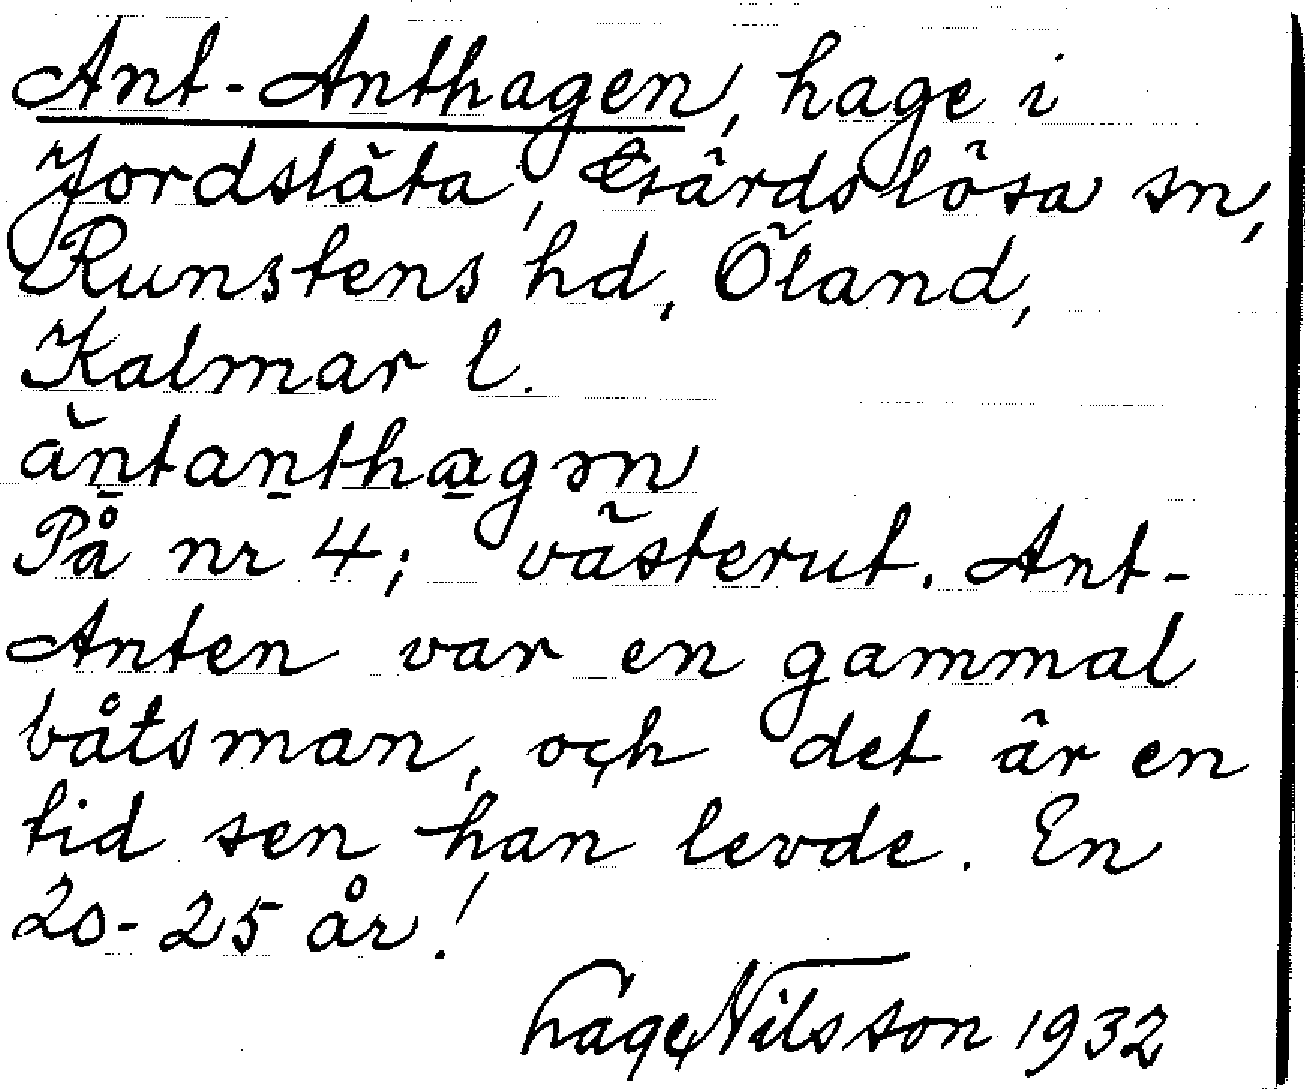 Ant-Anthagen, hage i
Jordsläta, Gärdslösa sn,
Runstens hd, Öland,
Kalmar l.
ǎntanthagən
På nr 4; västerut. Ant-
Anten var en gammal
båtsman, och det är en
tid sen han levde. En
20-25 år!
Nilsson 1932